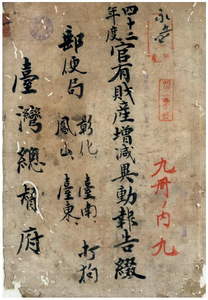 永臺
四十二年度官有財產增減異動報告綴
郵便局
彰化、臺南、打狗
鳳山、臺東、
臺灣總督府
九冊ノ內九